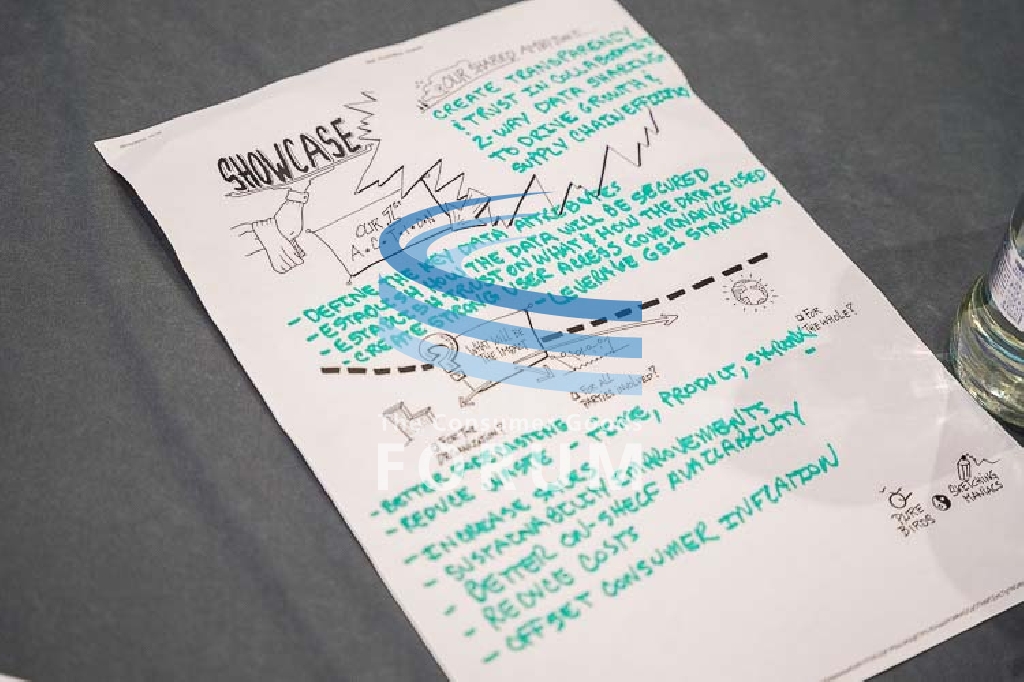 SHOWCASE
OUR SHARED AMBITION
CREATE TRANSPARENCY
& TRUST IN COLLABORATIVE
2-WAY DATA SHARING
TO DRIVE GROWTH &
SUPPLY CHAIN EFFICIENCY
OUR
- DEFINE THE KEY DATA ATTRIBUTES
- ESTABLISH HOW THE DATA WILL BE SECURED
- ESTABLISH TRUST ON WHAT & HOW THE DATA IS USED
- CREATE STRONG USER ACCESS GOVERNANCE
- LEVERAGE GS1 STANDARDS
WHAT
THE IMPACT
FOR THE
FOR ALL
PARTIES INVOLVED?
FOR
THE WHOLE?
- BETTER FORECASTING
- REDUCE WASTE - TIME, PRODUCT, SHRINK
- INCREASE SALES
- SUSTAINABILITY IMPROVEMENTS
- BETTER ON-SHELF AVAILABILITY
- REDUCE COSTS
- OFFSET CONSUMER INFLATION
PURE
BIRDS
SKETCHING
MANIACS
The Consumer Goods
FORUM